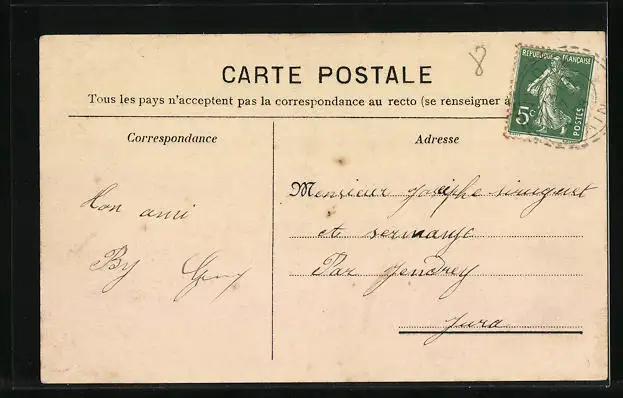 8
CARTE POSTALE
Tous les pays n'acceptent pas la correspondance au recto (se renseigner à
REPUBLIQUE FRANÇAISE
5c
POSTES
Correspondance
Adresse
Mon ami
By
Monsieur Josèphe
et sermange
Par Gendrey
Jura